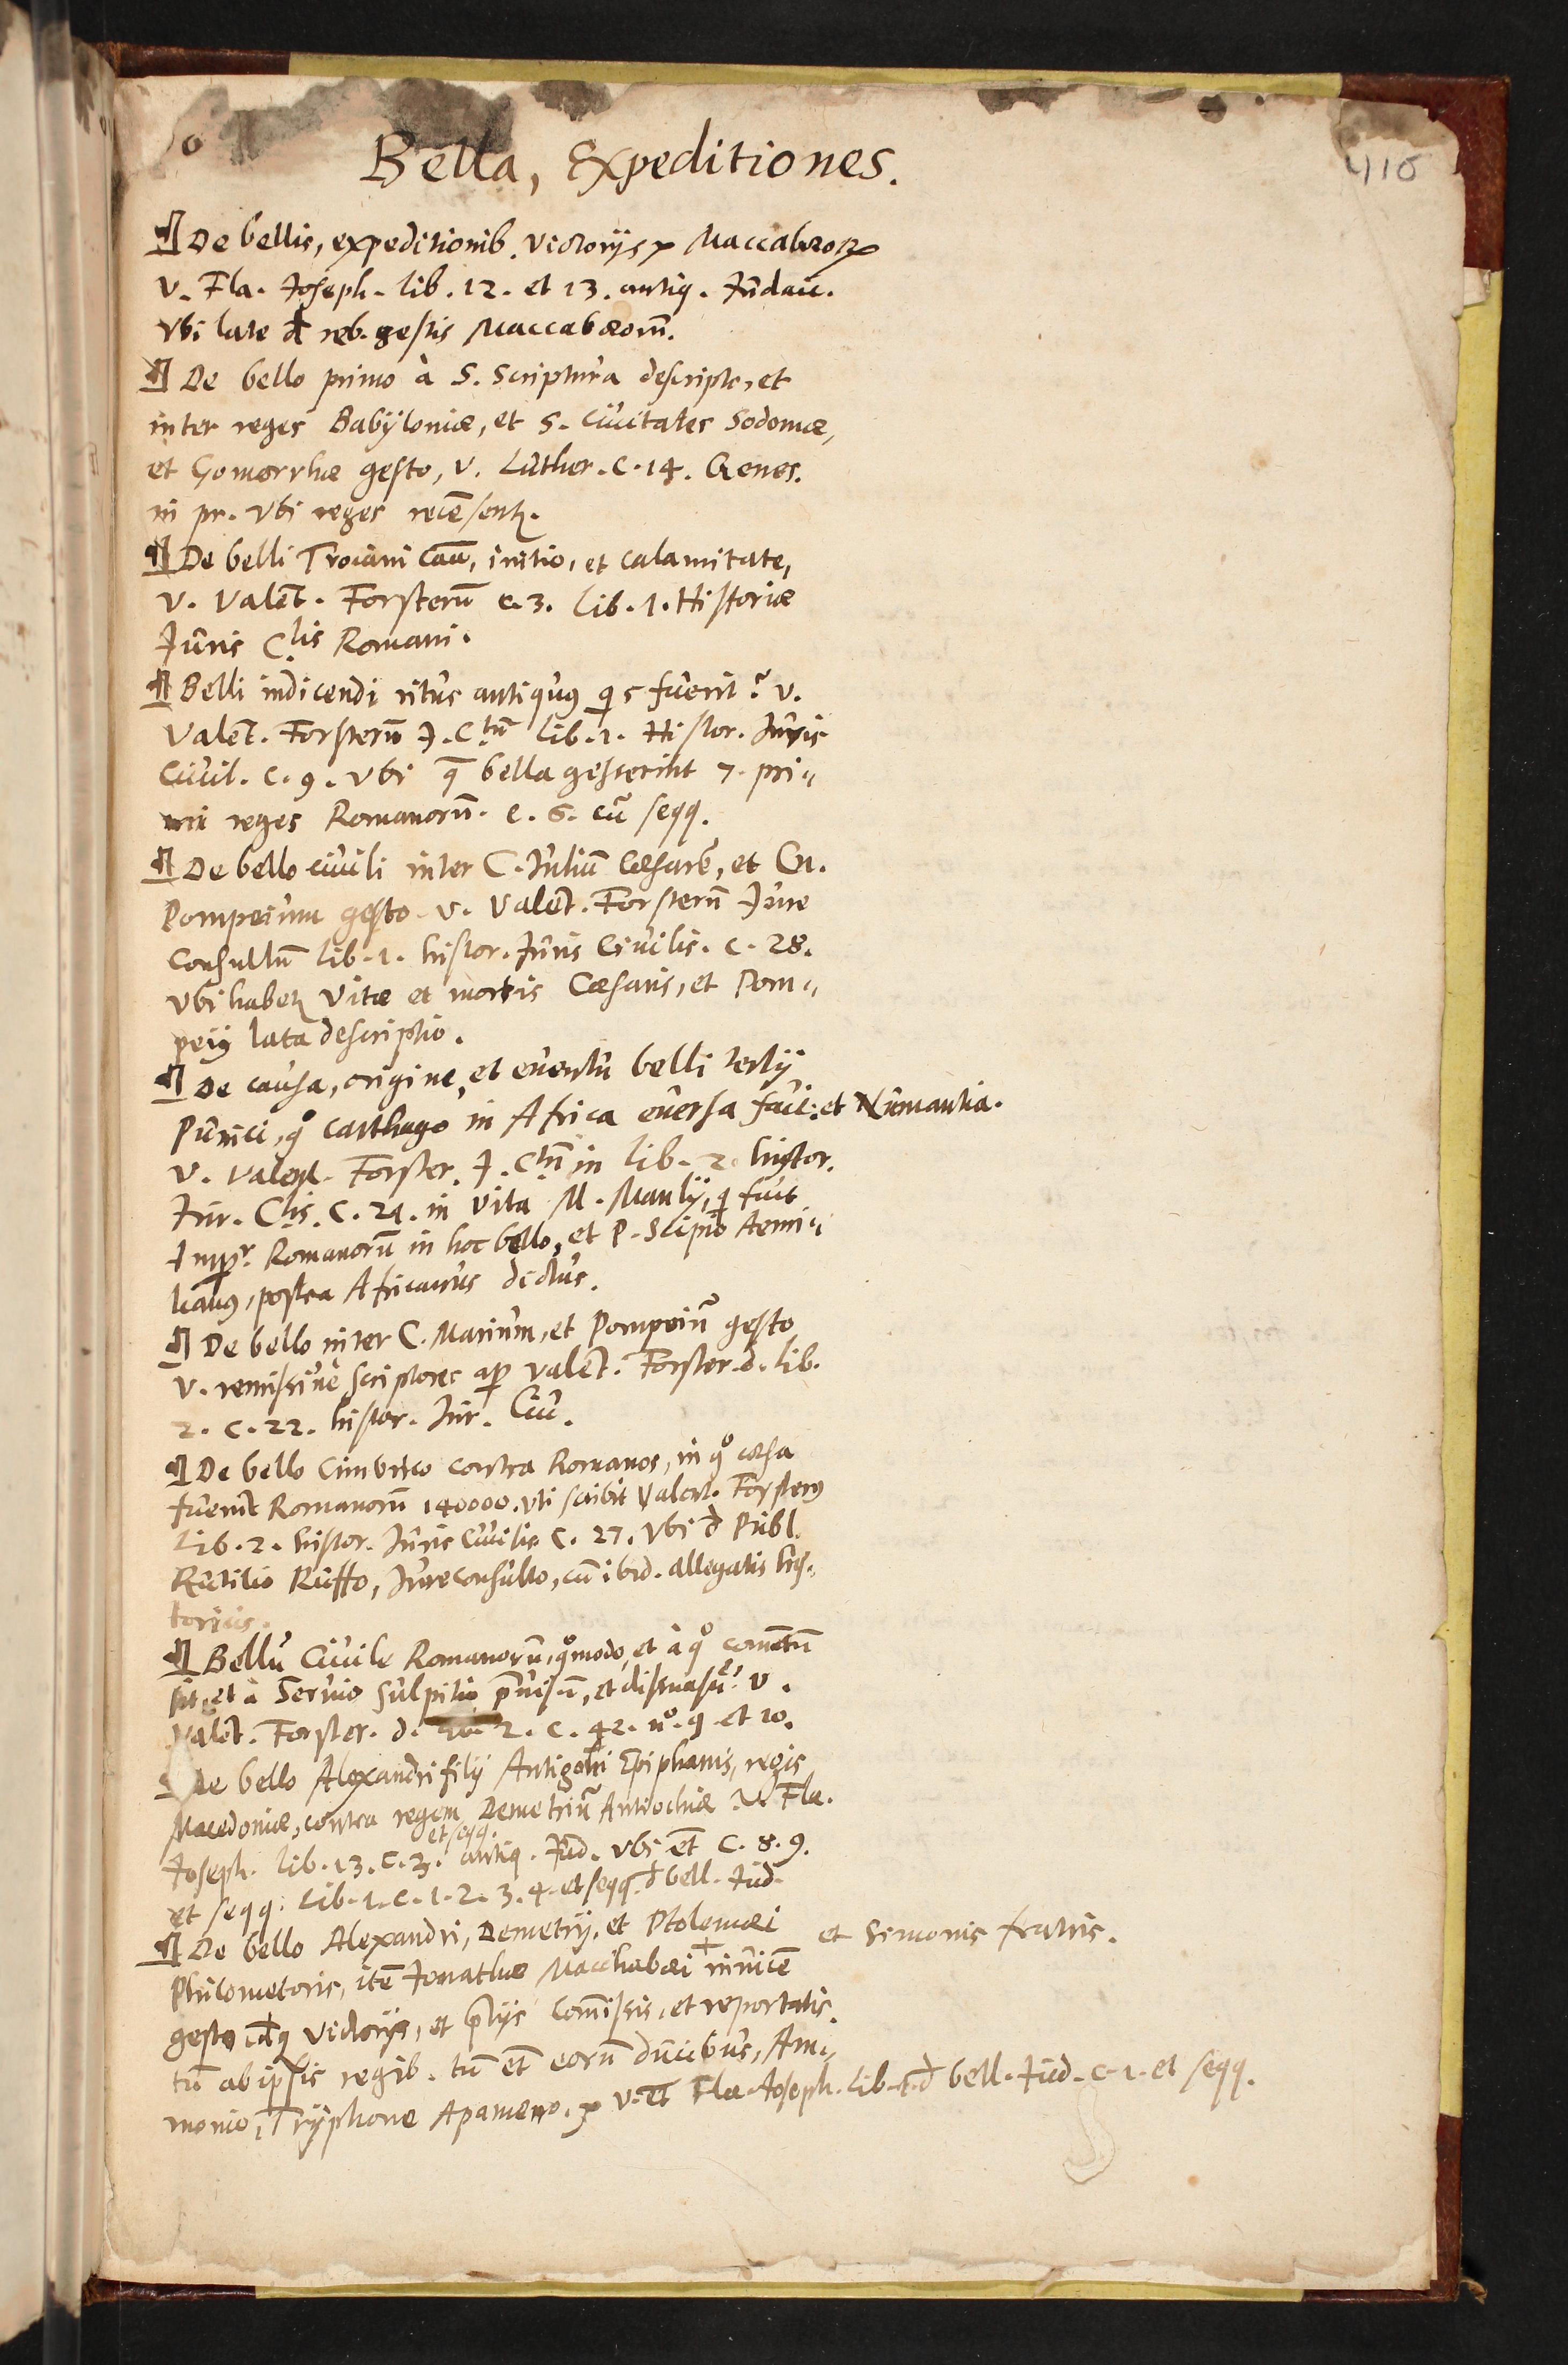 416
Bella, Expeditiones.
¶ De bellis, expeditionib. victorijs Maccabæor
v. Fla. Joseph. lib. 12. et 13. antiq. Judaic.
Vbi late d reb. gestis Maccabæorū.
¶ De bello primo à S. Scriptura descripto, et
inter reges Babyloniæ, et 5. civitates Sodomæ,
et Gomorrhæ gesto, v. Luther. c. 14. Genes.
in pr. Vbi reges recēsent.
¶ De belli Troiani cau, initio, et calamitate,
v. Valēt. Forsterū c. 3. lib. 1. Historiæ
Juris C.lis Romani.
¶ Belli indicendi ritus antiquus qs fuerit? v.
Valēt. Forsterū J. Ctū lib. 1. Histor. Juris
Civil. c. 9. Vbi q bella gesserint 7. pri„
mi reges Romanorū. c. 6. cū seqq.
¶ De bello civili inter C. Juliū Cæsarē, et Cn.
Pompeium gesto v. Valēt. Forsterū Jure
Consultū lib. 1. histor. Juris Civilis. c. 28.
Vbi habet Vitæ et mortis Cæsaris, et Pom„
peij lata descriptio.
¶ De causa, origine, et eventu belli tertij
Punici, qo Carthago in Africa eversa fuit: et Numantia.
v. Valent. Forster. J. Ctū in lib. 2. histor.
Jur. C.lis. c. 24. in vita M. Manlij, q fuit
Impr. Romanorū in hoc bello, et P. Scipio Aemi„
lianus, postea Africanus dictus.
¶ De bello inter C. Marium, et Pompeiū gesto
v. remissivè scriptores ap Valēt. Forster. d. lib.
2. c. 22. histor. Jur. Civ.
¶ De bello Cimbrico contra Romanos, in qo cæsa
fuerūt Romanorū 140000. vti scribit Valent. Forsterus
Lib. 2. histor. Juris Civilis c. 27. Vbi d Publ.
Rutilio Ruffo, Jureconsulto, cū ibid. allegatis his„
toricis.
¶ Bellū Civile Romanorū, qomodo, et à qo
sit, et à Servio Sulpitio pvisū, et dissuasū? v.
Valēt. Forster. d. lib. 2. c. 42. no. 9. et 10.
De bello Alexandri filij Antigoni Epiphanis, regis
Macedoniæ, contra regem Demetriū Antiochiæ v. Fla.
et seqq.
Joseph. lib. 13. c. 3. antiq. Jud. Vbi et c. 8. 9.
et seqq. Lib. 1. c. 1. 2. 3. 4. et seqq. d bell. Jud.
¶ De bello Alexandri, Demetrij, et Ptolemæi
Philometoris, itē Jonathæ Macchabæi + invicē
et Simonis fratris.
gesto, dq victorijs, et plijs comissis, et reportatis,
tū ab ipsis regib. tū et eorū ducibus, Am„
monio, Tryphone Apameno. v. et Fla. Joseph. Lib. 1. d bell. Jud. c. 2. et seqq.